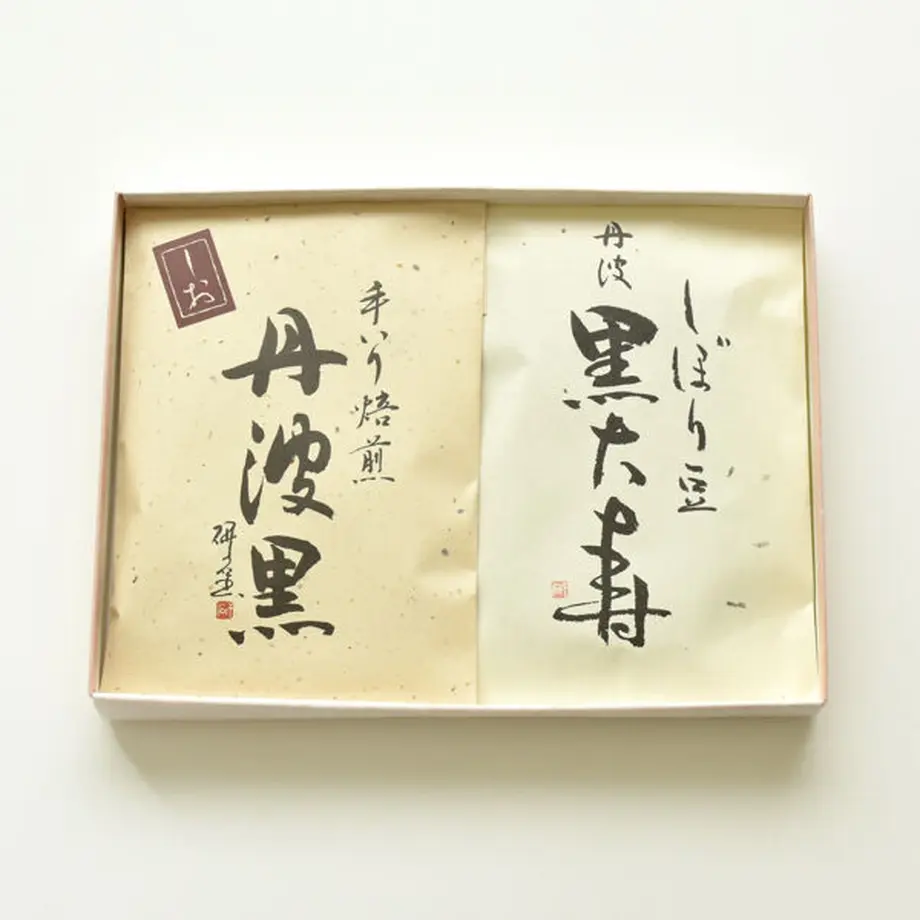 しぼり豆
丹波
黒大寿
手いり焙煎
丹波黒
しお